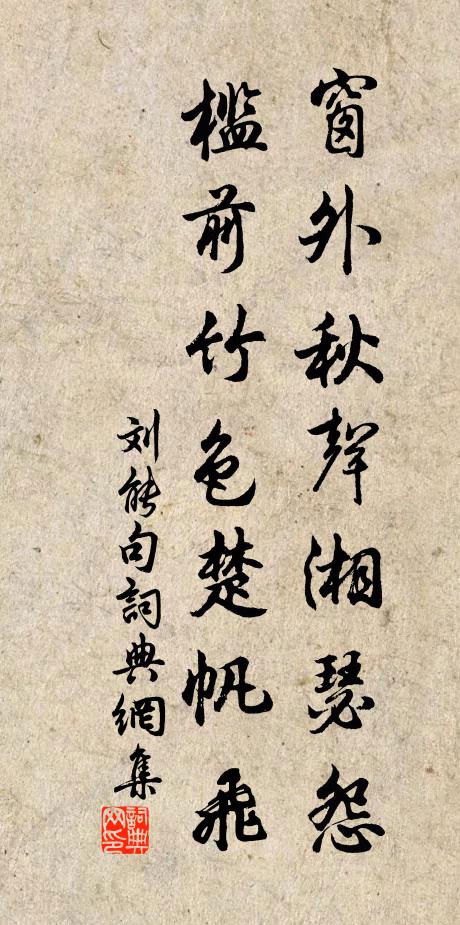 窗外秋聲湘瑟怨
檻前竹色楚帆飛
刘能句詞典網集
詞典网印